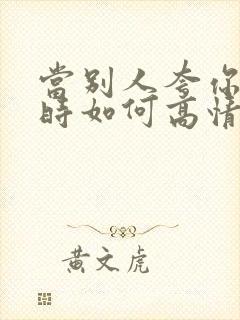 當別人夸你
時如何高情
黃文虎